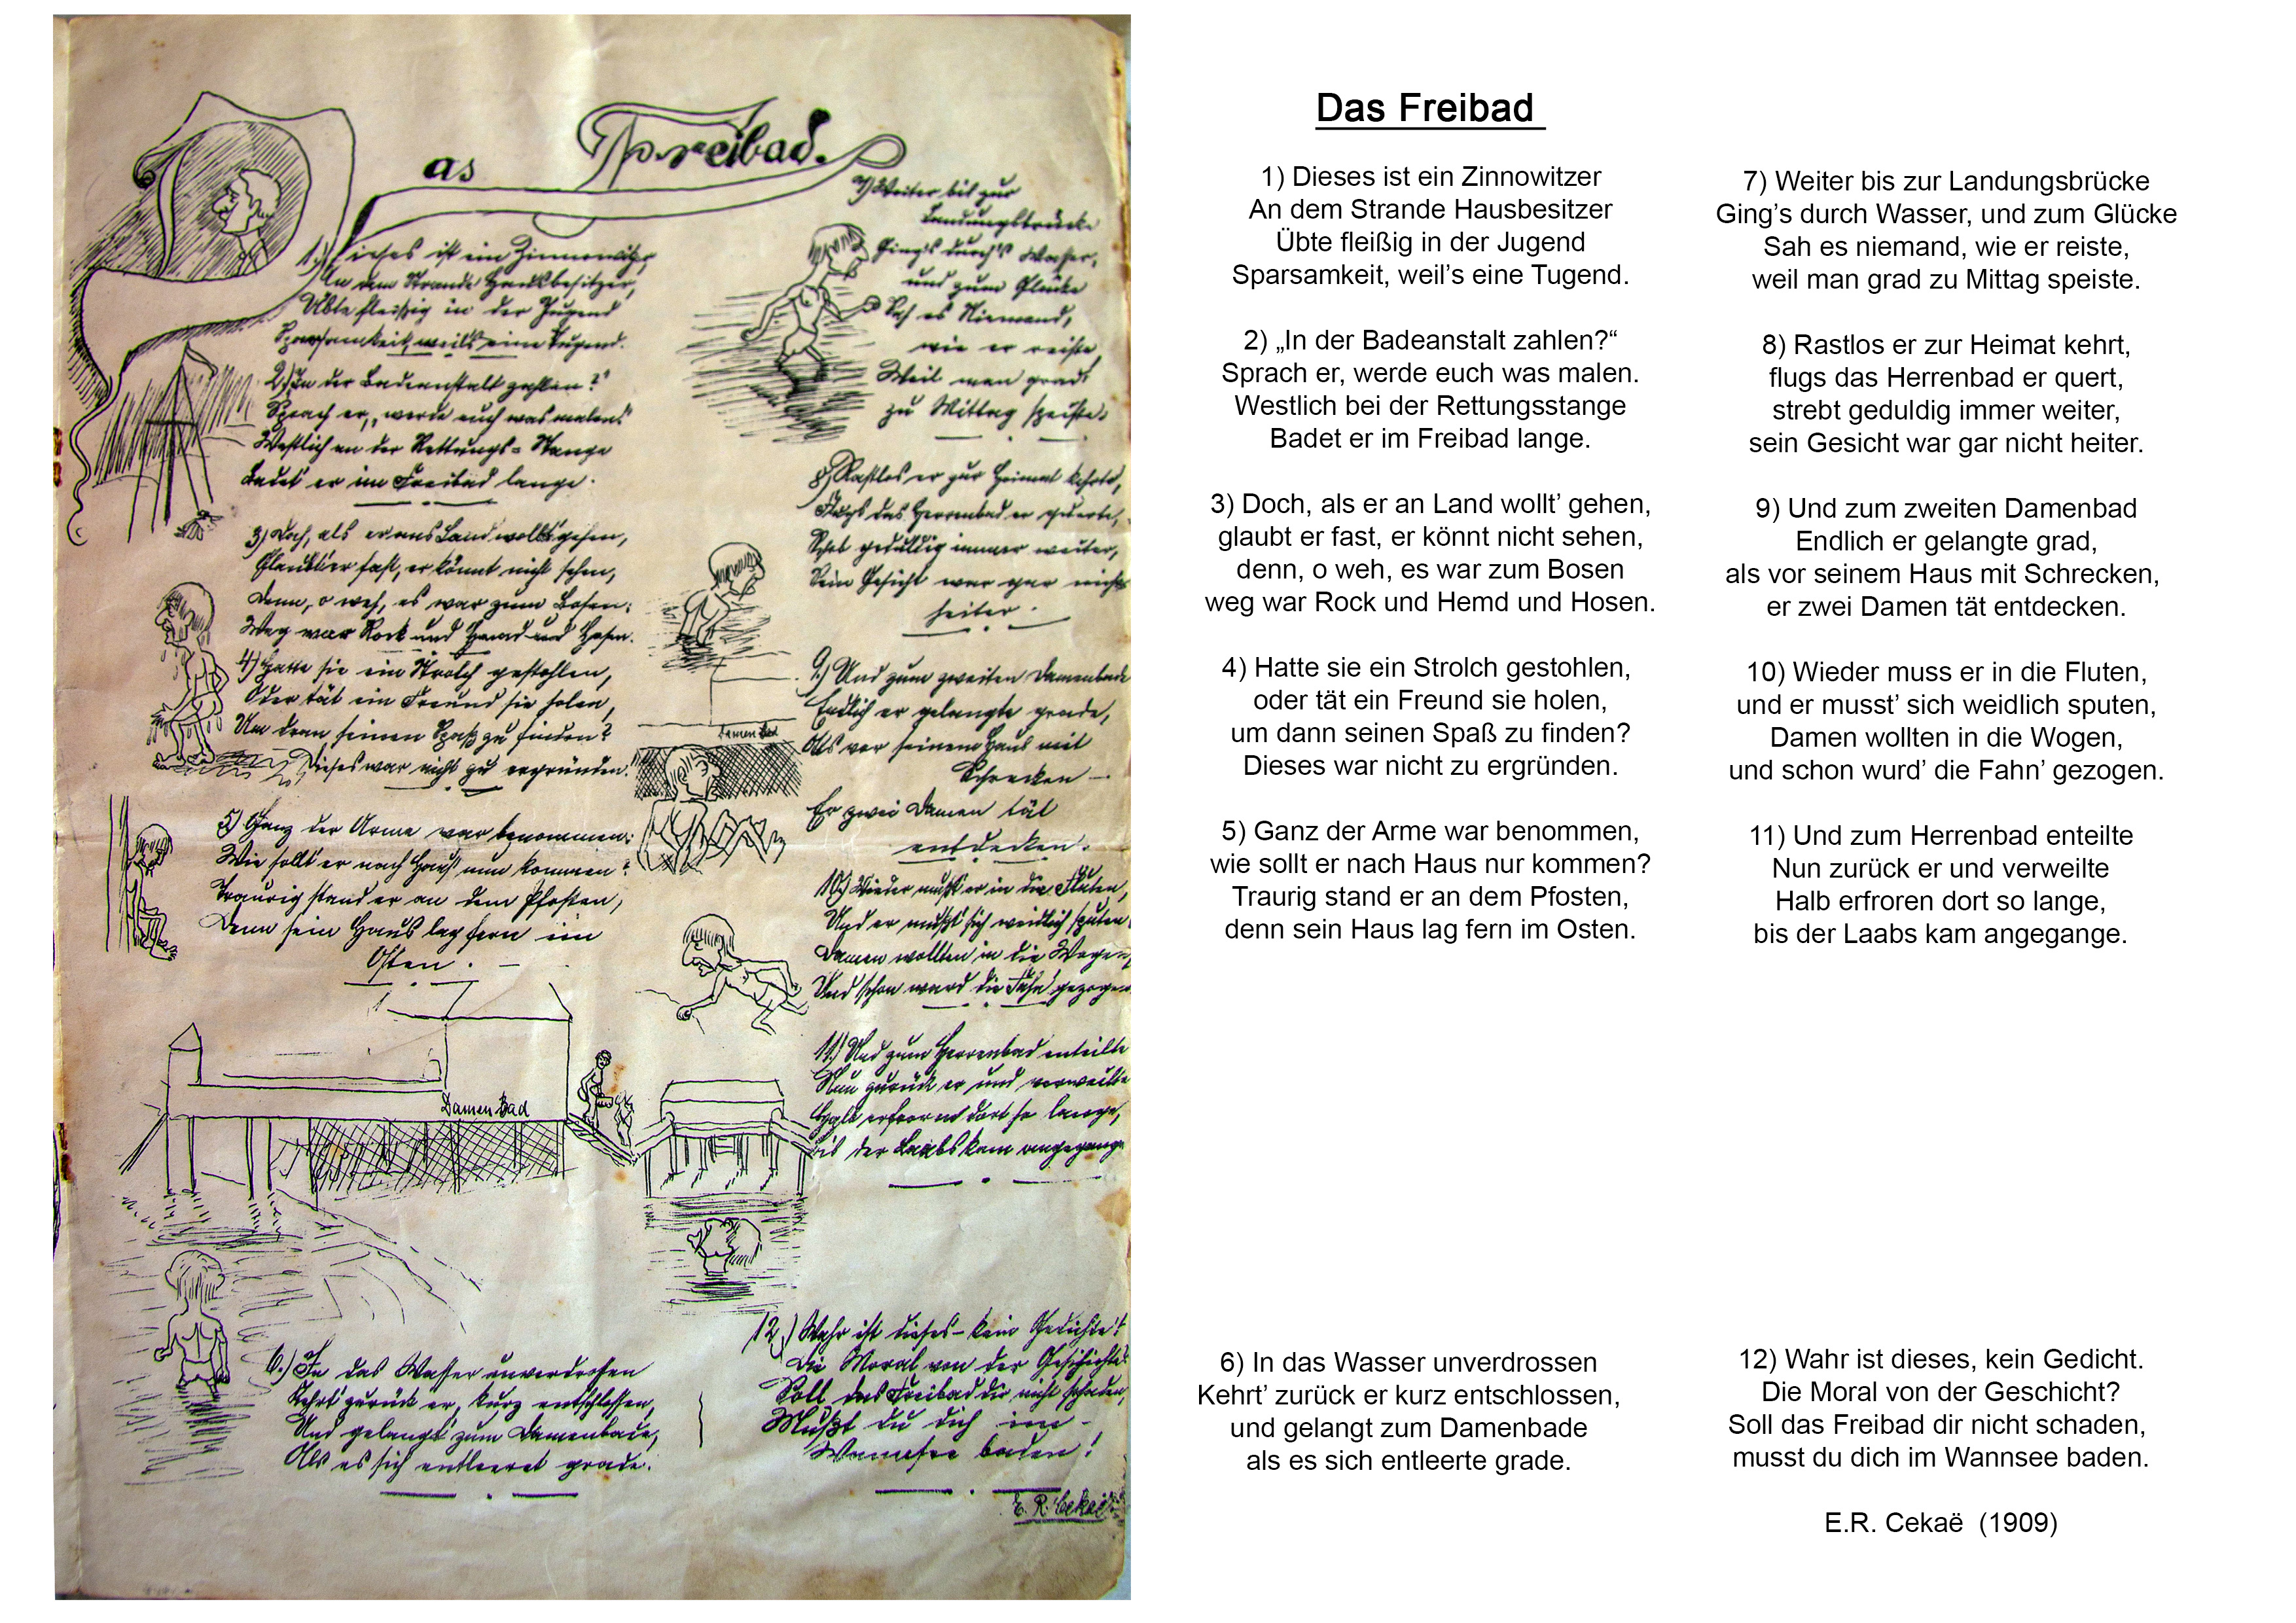 Das Freibad.
1.) Dieses ist ein Zinnowitzer,
An dem Strande Hausbesitzer,
Übte fleißig in der Jugend
Sparsamkeit, weils eine Tugend.
2.) "In der Badeanstalt zahlen?"
Sprach er, "werde euch was malen!"
Westlich an der Rettungs-Stange
Badet' er im Freibad lange.
3.) Doch, als er ans Land wollt' gehen,
Glaubt' er fast, er könnt nicht sehen,
Denn, o weh, es war zum Bosen:
Weg war Rock und Hemd und Hosen.
4.) Hatte sie ein Strolch gestohlen,
Oder tät ein Freund sie holen,
Um dann seinen Spaß zu finden?
Dieses war nicht zu ergründen!
5.) Ganz der Arme war benommen:
Wie sollt' er nach Haus nun kommen?
Traurig stand er an dem Pfosten,
Denn sein Haus lag fern im
Osten.
Damen Bad
6.) In das Wasser unverdrossen
Kehrt' zurück er, kurz entschlossen,
Und gelangt' zum Damenbade,
Als es sich entleeret grade.
7.) Weiter bis zur
Landungsbrücke
Ging's durch's Wasser,
und zum Glücke
Sah es Niemand,
wie er reiste,
Weil man grad'
zu Mittag speiste.
8.) Rastlos er zur Heimat kehrte,
Flugs das Herrenbad er querte,
Strebt geduldig immer weiter,
Sein Gesicht war gar nicht
heiter.
9.) Und zum zweiten Damenbade
Endlich er gelangte grade,
Als vor seinem Haus mit
Schrecken
Er zwei Damen tät
entdecken.
Damen Bad
10.) Wieder mußt' er in die Fluten,
Und er mußt' sich weidlich sputen,
Damen wollten in die Wogen,
Und schon ward die Fahn' gezogen.
11.) Und zum Herrenbad enteilte
Nun zurück er und verweilte
Halb erfroren dort so lange,
Bis der Laabs kam angegange
12.) Wahr ist dieses - kein Gedichte!
Die Moral von der Geschichte:
Soll das Freibad dir nicht schaden,
Mußt du dich im
Wannsee baden!
E. R. Cekaë
Das Freibad
1) Dieses ist ein Zinnowitzer
An dem Strande Hausbesitzer
Übte fleißig in der Jugend
Sparsamkeit, weil’s eine Tugend.
2) „In der Badeanstalt zahlen?“
Sprach er, werde euch was malen.
Westlich bei der Rettungsstange
Badet er im Freibad lange.
3) Doch, als er an Land wollt’ gehen,
glaubt er fast, er könnt nicht sehen,
denn, o weh, es war zum Bosen
weg war Rock und Hemd und Hosen.
4) Hatte sie ein Strolch gestohlen,
oder tät ein Freund sie holen,
um dann seinen Spaß zu finden?
Dieses war nicht zu ergründen.
5) Ganz der Arme war benommen,
wie sollt er nach Haus nur kommen?
Traurig stand er an dem Pfosten,
denn sein Haus lag fern im Osten.
6) In das Wasser unverdrossen
Kehrt’ zurück er kurz entschlossen,
und gelangt zum Damenbade
als es sich entleerte grade.
7) Weiter bis zur Landungsbrücke
Ging’s durch Wasser, und zum Glücke
Sah es niemand, wie er reiste,
weil man grad zu Mittag speiste.
8) Rastlos er zur Heimat kehrt,
flugs das Herrenbad er quert,
strebt geduldig immer weiter,
sein Gesicht war gar nicht heiter.
9) Und zum zweiten Damenbad
Endlich er gelangte grad,
als vor seinem Haus mit Schrecken,
er zwei Damen tät entdecken.
10) Wieder muss er in die Fluten,
und er musst’ sich weidlich sputen,
Damen wollten in die Wogen,
und schon wurd’ die Fahn’ gezogen.
11) Und zum Herrenbad enteilte
Nun zurück er und verweilte
Halb erfroren dort so lange,
bis der Laabs kam angegange.
12) Wahr ist dieses, kein Gedicht.
Die Moral von der Geschicht?
Soll das Freibad dir nicht schaden,
musst du dich im Wannsee baden.
E.R. Cekaë (1909)